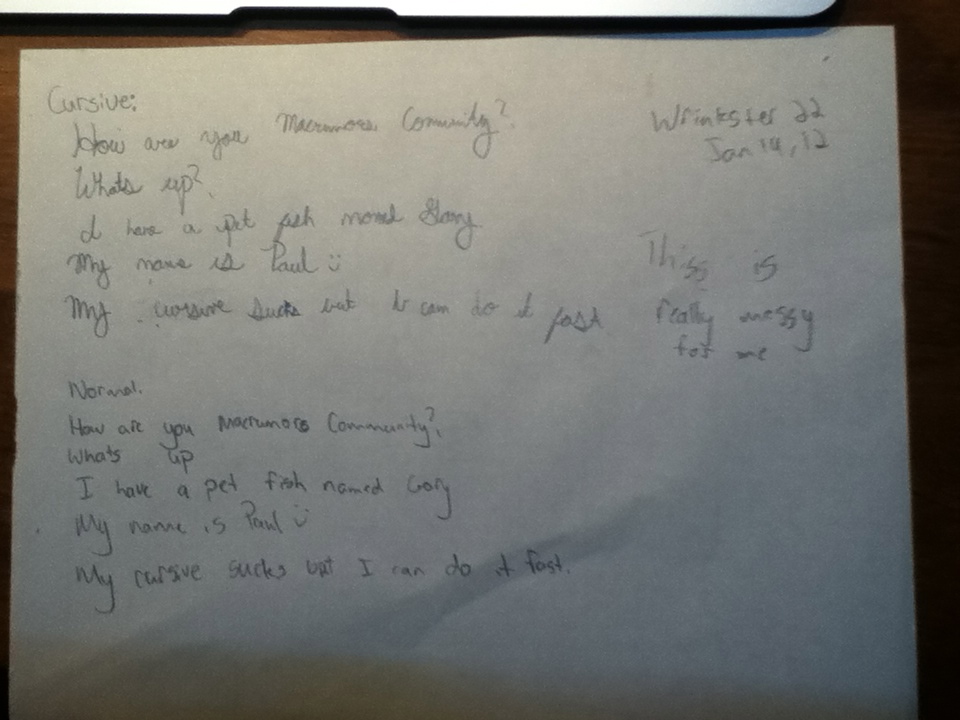 Cursive:
How are you Macrumors Community?
Whats up?
I have a pet fish named Gary
My name is Paul :)
My cursive sucks but I can do it fast
Wrinkster 22
Jan 14, 12
Thiss is
really messy
for me
Normal.
How are you Macrumors Community?
Whats up
I have a pet fish named Gary
My name is Paul :)
My cursive sucks but I can do it fast.